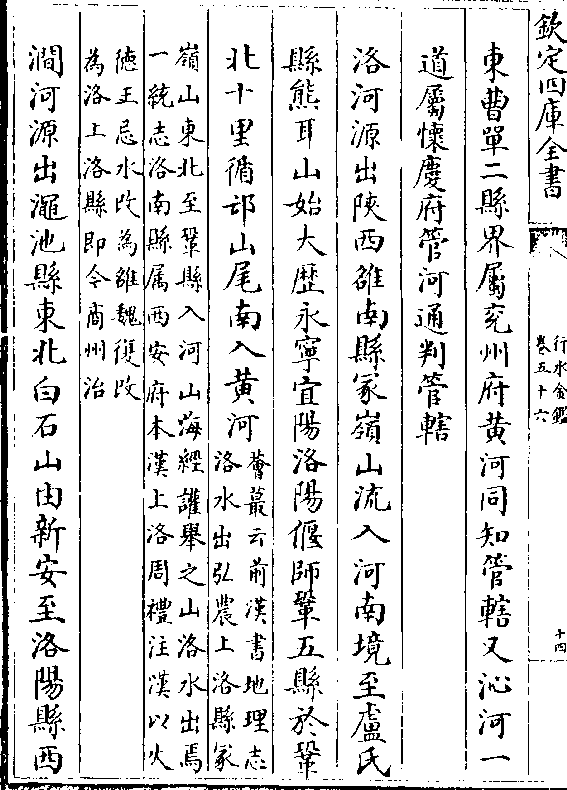 欽定四庫全書
行水金鑑
卷五十六
十四
東曹單二縣界屬兖州府黃河同知管轄又沁河一
道屬懷慶府管河通判管轄
洛河源出陜西雒南縣冡嶺山流入河南境至盧氏
縣熊耳山始大歷永寧宜陽洛陽偃師鞏五縣於鞏
北十里循邙山尾南入黃河
薈蕞云前漢書地理志
洛水出弘農上洛縣冡
嶺山東北至鞏縣入河山海經讙舉之山洛水出焉
一統志洛南縣属西安府本漢上洛周禮注漢以火
徳王忌水改為雒魏復改
為洛上洛縣即今商州治
澗河源出澠池縣東北白石山由新安至洛陽縣西